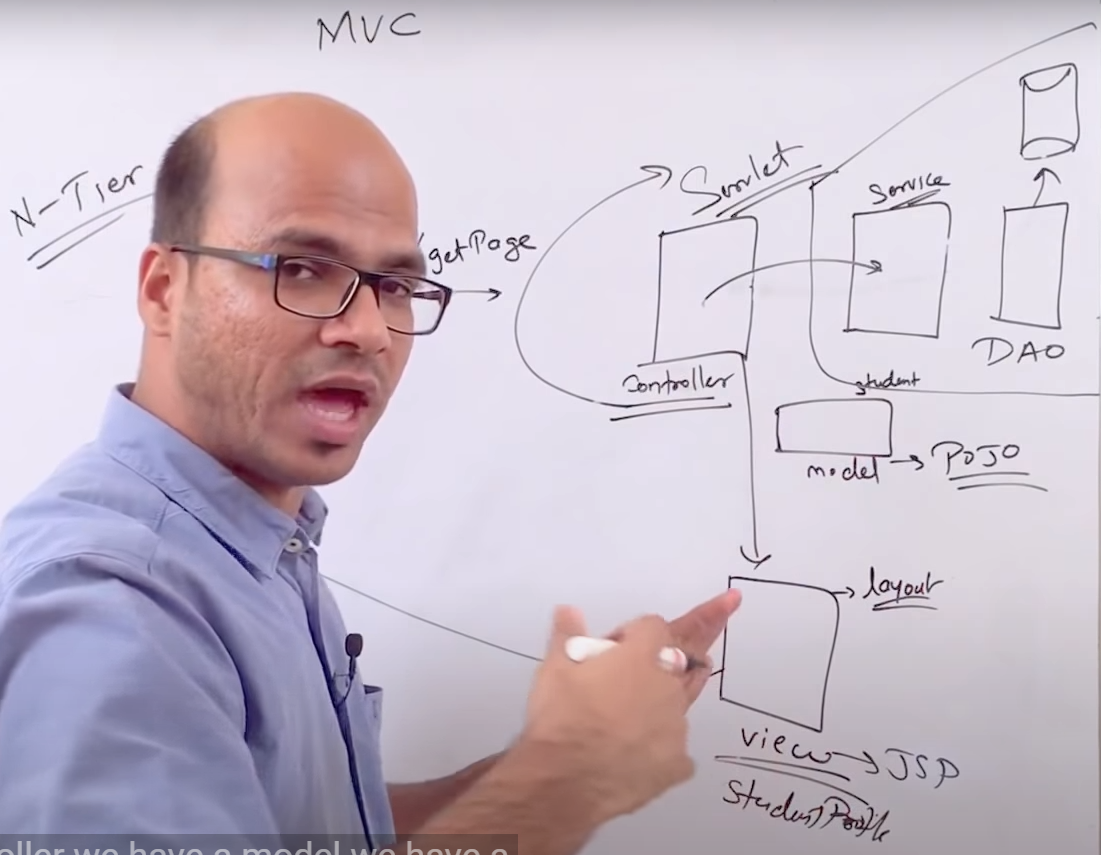 MVC
N-Tier
getPage
Servlet
Service
Controller
DAO
student
model → POJO
→ layout
view → JSP
Student Profile
oller we have a model we have a